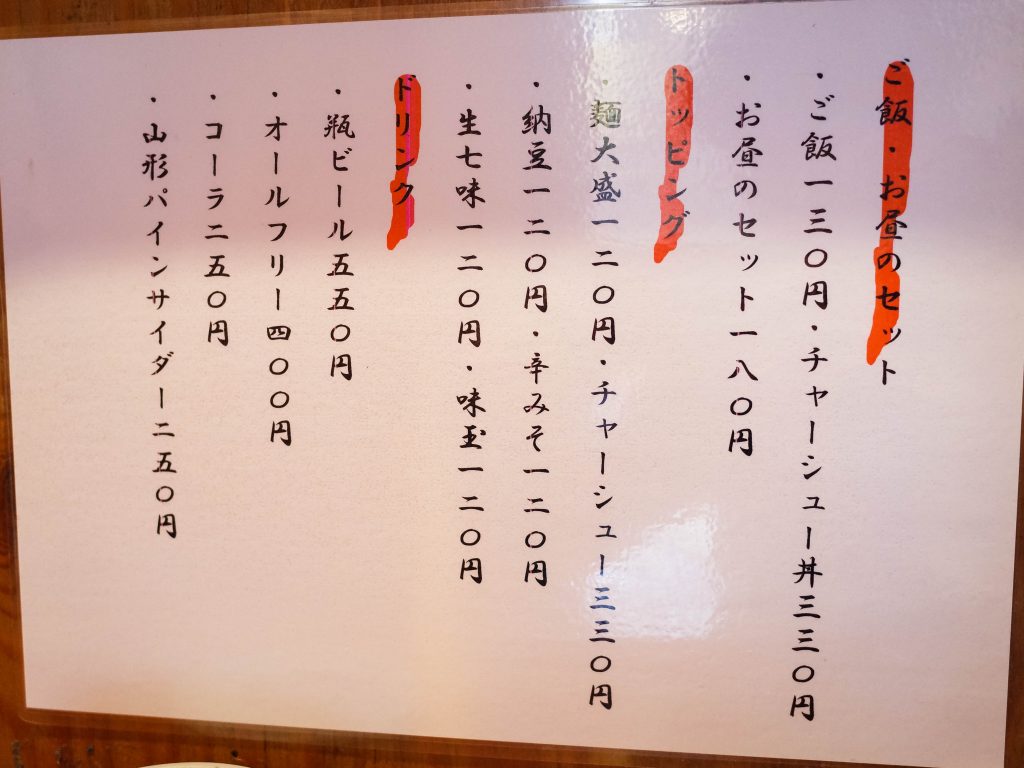 ご飯・お昼のセット
・ご飯一三〇円・チャーシュー丼三三〇円
・お昼のセット一八〇円
トッピング
・麺大盛一二〇円・チャーシュー三三〇円
・納豆一二〇円・辛みそ一二〇円
・生七味一二〇円・味玉一二〇円
ドリンク
・瓶ビール五五〇円
・オールフリー四〇〇円
・コーラ二五〇円
・山形パインサイダー二五〇円